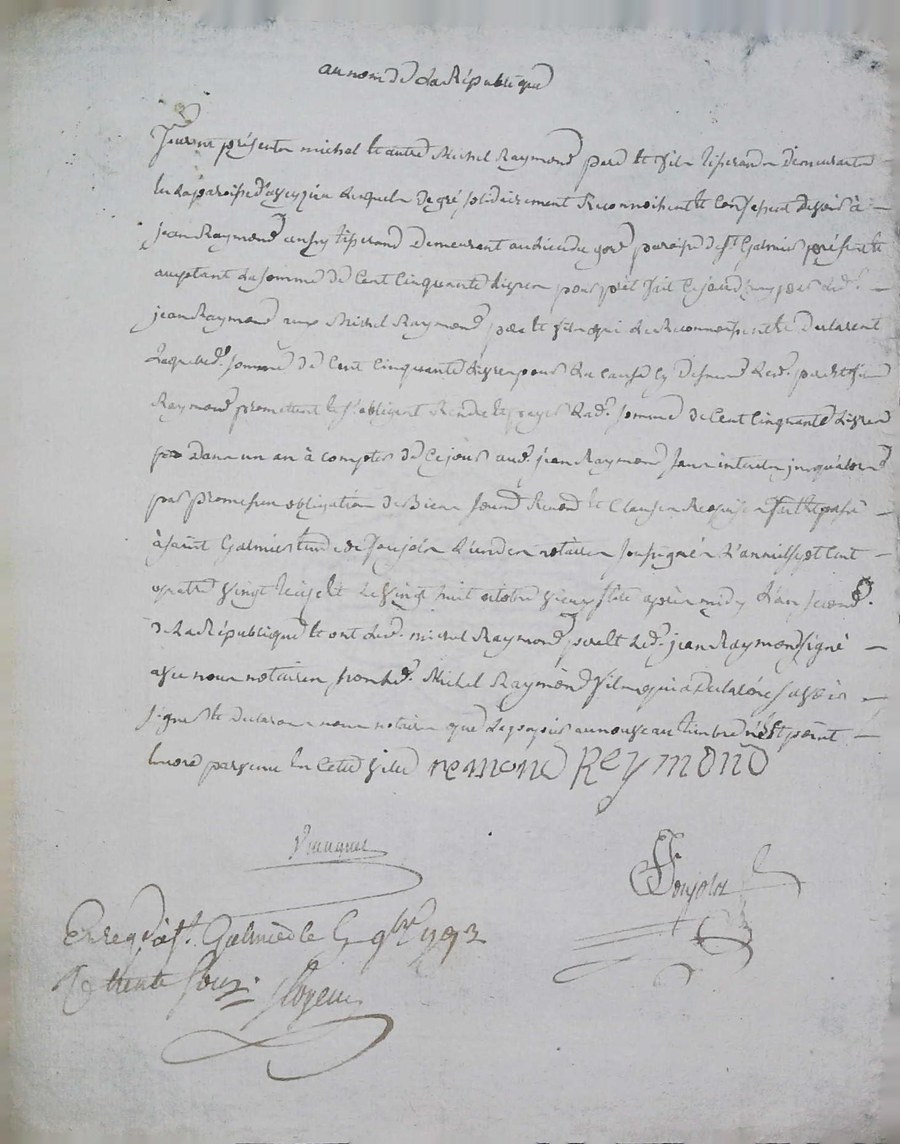 au nom de la République
furent présents michel et autre Michel Raymond pere et fils tisserands demeurants
en la paroisse d'aveyzieu lesquels de gré solidairement Reconnoissent et Confessent devoir à
jean Raymond aussy tisserand demeurant au lieu du paroisse de st. Galmier présent et
acceptant la somme de Cent Cinquante livres pour prêt fait par led.
jean Raymond aux Michel Raymond pere et fils qui le Reconnoissent et declarent
Laquelle somme de Cent Cinquante livres pour la cause cy dessus lesd. pere et fils
Raymond promettent et s'obligent Rendre et payer lad. somme de Cent Cinquante Livres
dans un an à compter de ce jour aud. jean Raymond sans interets jusqu'alors
par promesses obligation de Biens Renond et Clauses Requises fait et passé
à saint Galmier etude de Soujoln l'un des notaires soussignés L'an mil sept Cent
quatre vingt treize et le vingt huit octobre vieux stile après midy L'an second
de La République et ont led. michel Raymond pere et led. jean Raymond signé
avec nous notaires non led. Michel Raymond fils qui a declaré ne savoir
signer et declarons nous notaires que le papier au nouveau timbre n'est point
encore parvenu en cette ville remond Reymond
Enregt. à st. Galmier le 5 9bre 1793
R trente sous